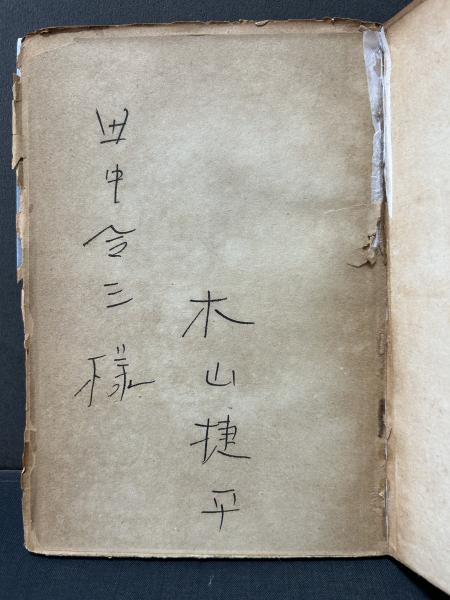 木山捷平
田中令三様